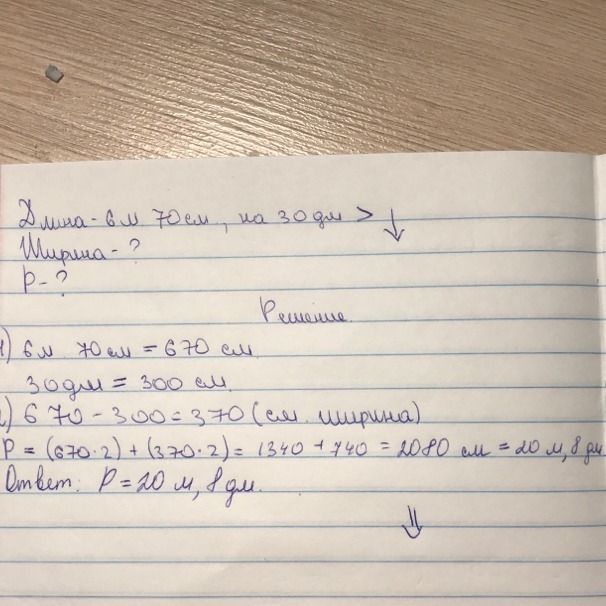 Длина - 6 м 70 см, на 30 дм > ↓
Ширина - ?
P - ?
Решение
1) 6 м 70 см = 670 см
30 дм = 300 см
2) 670 - 300 = 370 (см. ширина)
P = (670·2) + (370·2) = 1340 + 740 = 2080 см = 20 м, 8 дм
Ответ: P = 20 м, 8 дм.
⇓